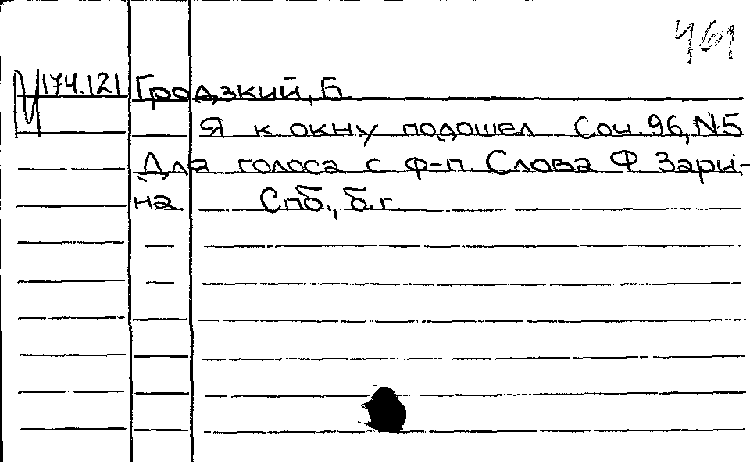 461
И 174.121 Гродзкий, Б.
Я к окну подошел Соч. 96, N5
Для голоса с ф-п. Слова Ф Зари-
на. Спб., б.г.